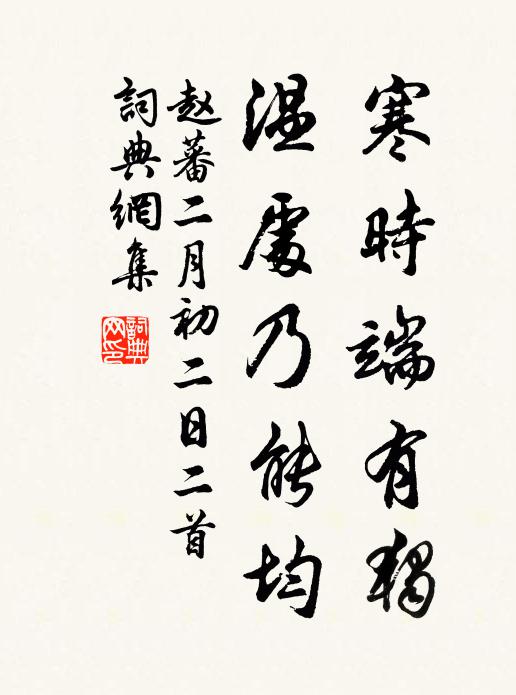 寒時端有獨
溫處乃能均
赵蕃二月初二日二首
詞典網集
詞典網印